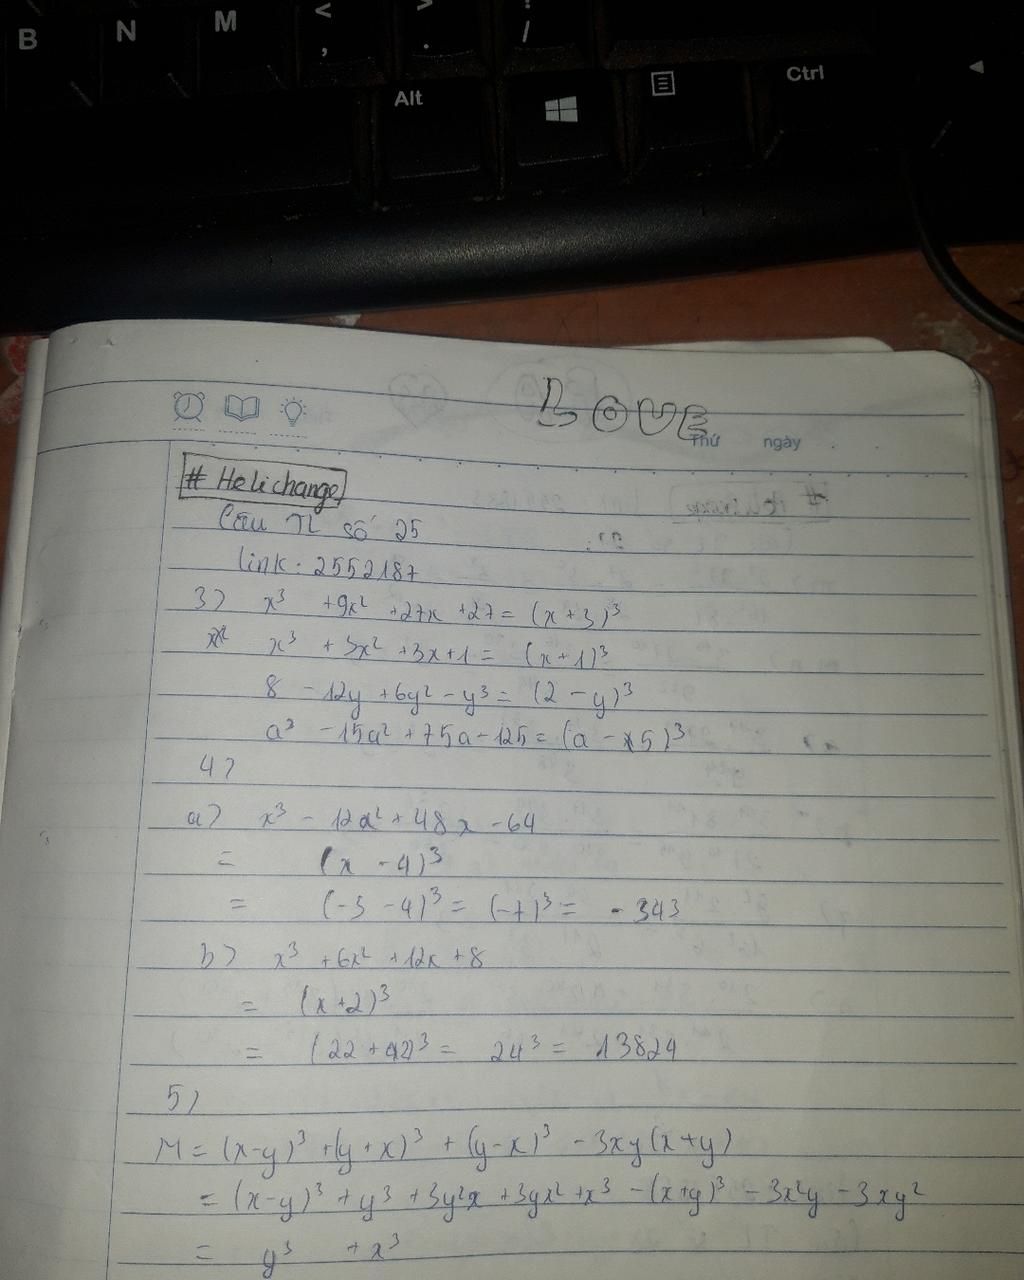 B N M < , > . ? /
Alt Ctrl
LOVE
Thứ ngày
# Helichange
Câu TL số 25
link: 2552187
3) x³ + 9x² + 27x + 27 = (x + 3)³
x³ + 3x² + 3x + 1 = (x + 1)³
8 - 12y + 6y² - y³ = (2 - y)³
a³ - 15a² + 75a - 125 = (a - 5)³
4)
a) x³ - 12x² + 48x - 64
= (x - 4)³
= (-3 - 4)³ = (-7)³ = -343
b) x³ + 6x² + 12x + 8
= (x + 2)³
= (22 + 2)³ = 24³ = 13824
5)
M = (x-y)³ + (y + x)³ + (y - x)³ - 3xy(x + y)
= (x - y)³ + y³ + 3y²x + 3yx² + x³ - (x + y)³ - 3x²y - 3xy²
= y³ + x³